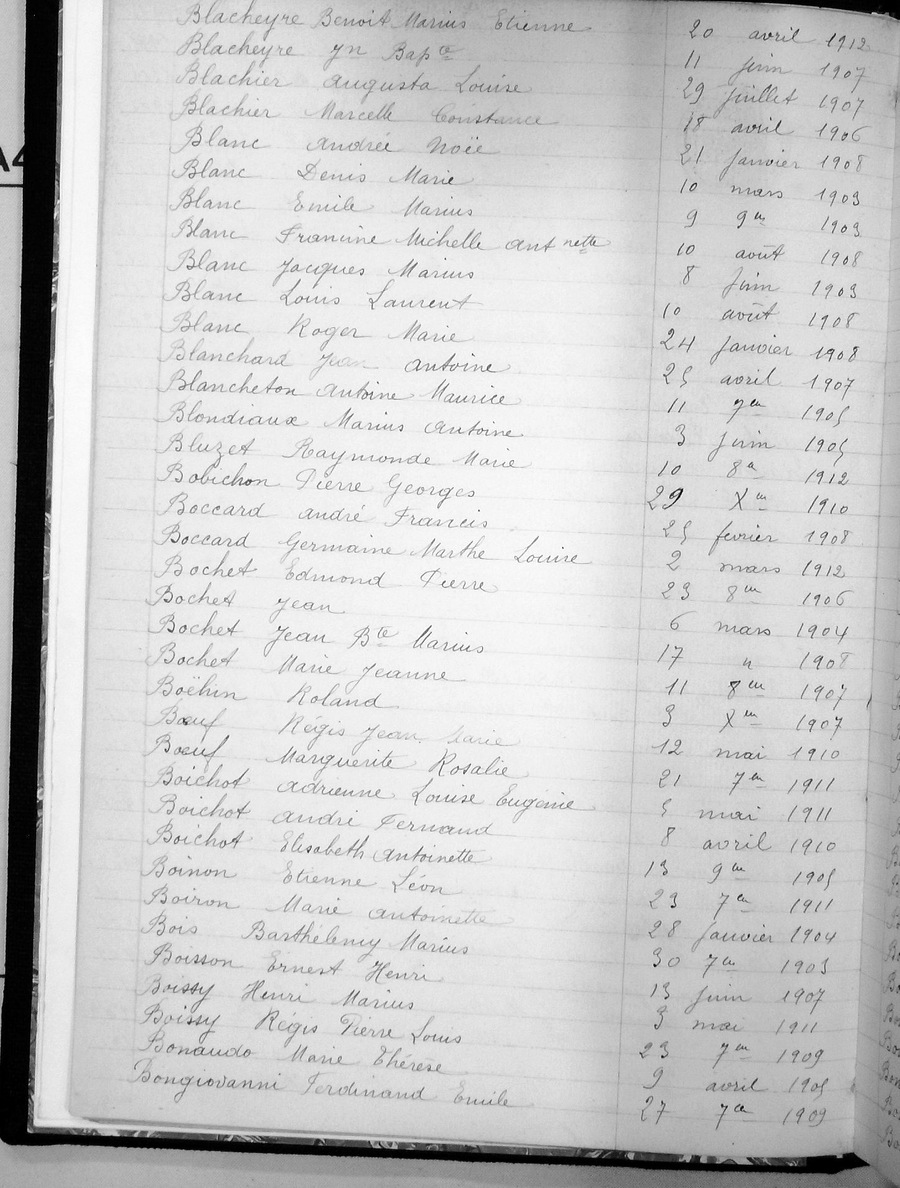 Blacheyre Benoit Marius Etienne 20 avril 1912
Blacheyre Jn Bapte 11 juin 1907
Blachier Augusta Louise 29 juillet 1907
Blachier Marcelle Constance 18 avril 1906
Blanc Andrée Noëe 21 janvier 1908
Blanc Denis Marie 10 mars 1903
Blanc Emile Marius 9 9re 1903
Blanc Francine Michelle Antnette 10 août 1908
Blanc Jacques Marius 8 juin 1903
Blanc Louis Laurent 10 août 1908
Blanc Roger Marie 24 janvier 1908
Blanchard Jean Antoine 25 avril 1907
Blancheton Antoine Maurice 11 7re 1905
Blondiaux Marius Antoine 3 juin 1905
Bluzet Raymonde Marie 10 8re 1912
Bobichon Pierre Georges 29 Xre 1910
Boccard André Francis 25 fevrier 1908
Boccard Germaine Marthe Louise 2 mars 1912
Bochet Edmond Pierre 23 8re 1906
Bochet Jean 6 mars 1904
Bochet Jean Bte Marius 17 " 1908
Bochet Marie Jeanne 11 8re 1907
Boëhin Roland 3 Xre 1907
Bœuf Régis Jean Marie 12 mai 1910
Bœuf Marguerite Rosalie 21 7re 1911
Boichot Adrienne Louise Eugénie 5 mai 1911
Boichot André Fernand 8 avril 1910
Boichot Elisabeth Antoinette 13 9re 1905
Boinon Etienne Léon 23 7re 1911
Boiron Marie Antoinette 28 janvier 1904
Bois Barthélemy Marius 30 7re 1903
Boisson Ernest Henri 13 juin 1907
Boissy Henri Marius 3 mai 1911
Boissy Régis Pierre Louis 23 7re 1909
Bonaudo Marie Thérèse 9 avril 1905
Bongiovanni Ferdinand Emile 27 7re 1909